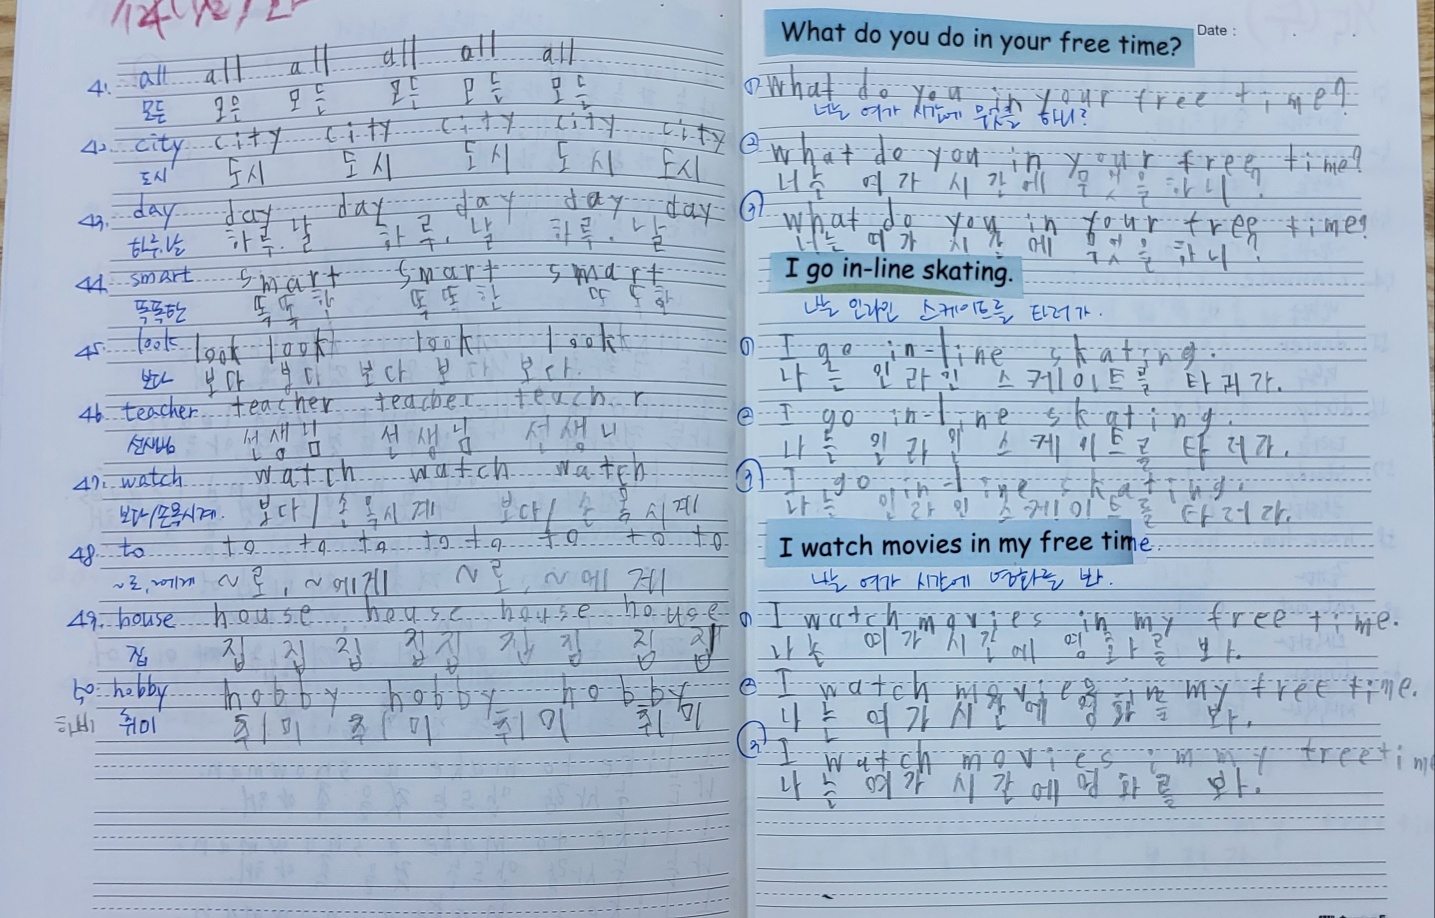 41. all all all all all all
모든 모든 모든 모든 모든 모든
42. city city city city city city
도시 도시 도시 도시 도시 도시
43. day day day day day day
하루.날 하루.날 하루.날 하루.날
44. smart smart smart smart
똑똑한 똑똑한
45. look look look look look
보다 보다 보다 보다 보다 보다
46. teacher teacher teacher teach r
선생님 선생님 선생님
47. watch watch watch watch
보다/손목시계. 보다/손목시계 보다/손목시계
48. to to to to to to to to to
~로, ~에게
49. house house house house house
집 집 집 집 집 집 집 집 집
50. happy happy happy happy
What do you do in your free time?
Date :
① What do you in your free time?
너는 여가 시간에 무엇을 하니?
② What do you in your free time?
너는 여가 시간에 무엇을 하니?
③ What do you in your free time?
너는 여가 시간에 무엇을 하니?
I go in-line skating.
나는 인라인 스케이트를 타러가.
① I go in-line skating.
나는 인라인 스케이트를 타러가.
② I go in-line skating.
나는 인라인 스케이트를 타러가.
③ I go in-line skating.
나는 인라인 스케이트를 타러가.
I watch movies in my free time.
나는 여가 시간에 영화를 봐.
① I watch movies in my free time.
나는 여가 시간에 영화를 봐.
② I watch movies in my free time.
나는 여가 시간에 영화를 봐.
③ I watch movies in my free time
나는 여가 시간에 영화를 봐.